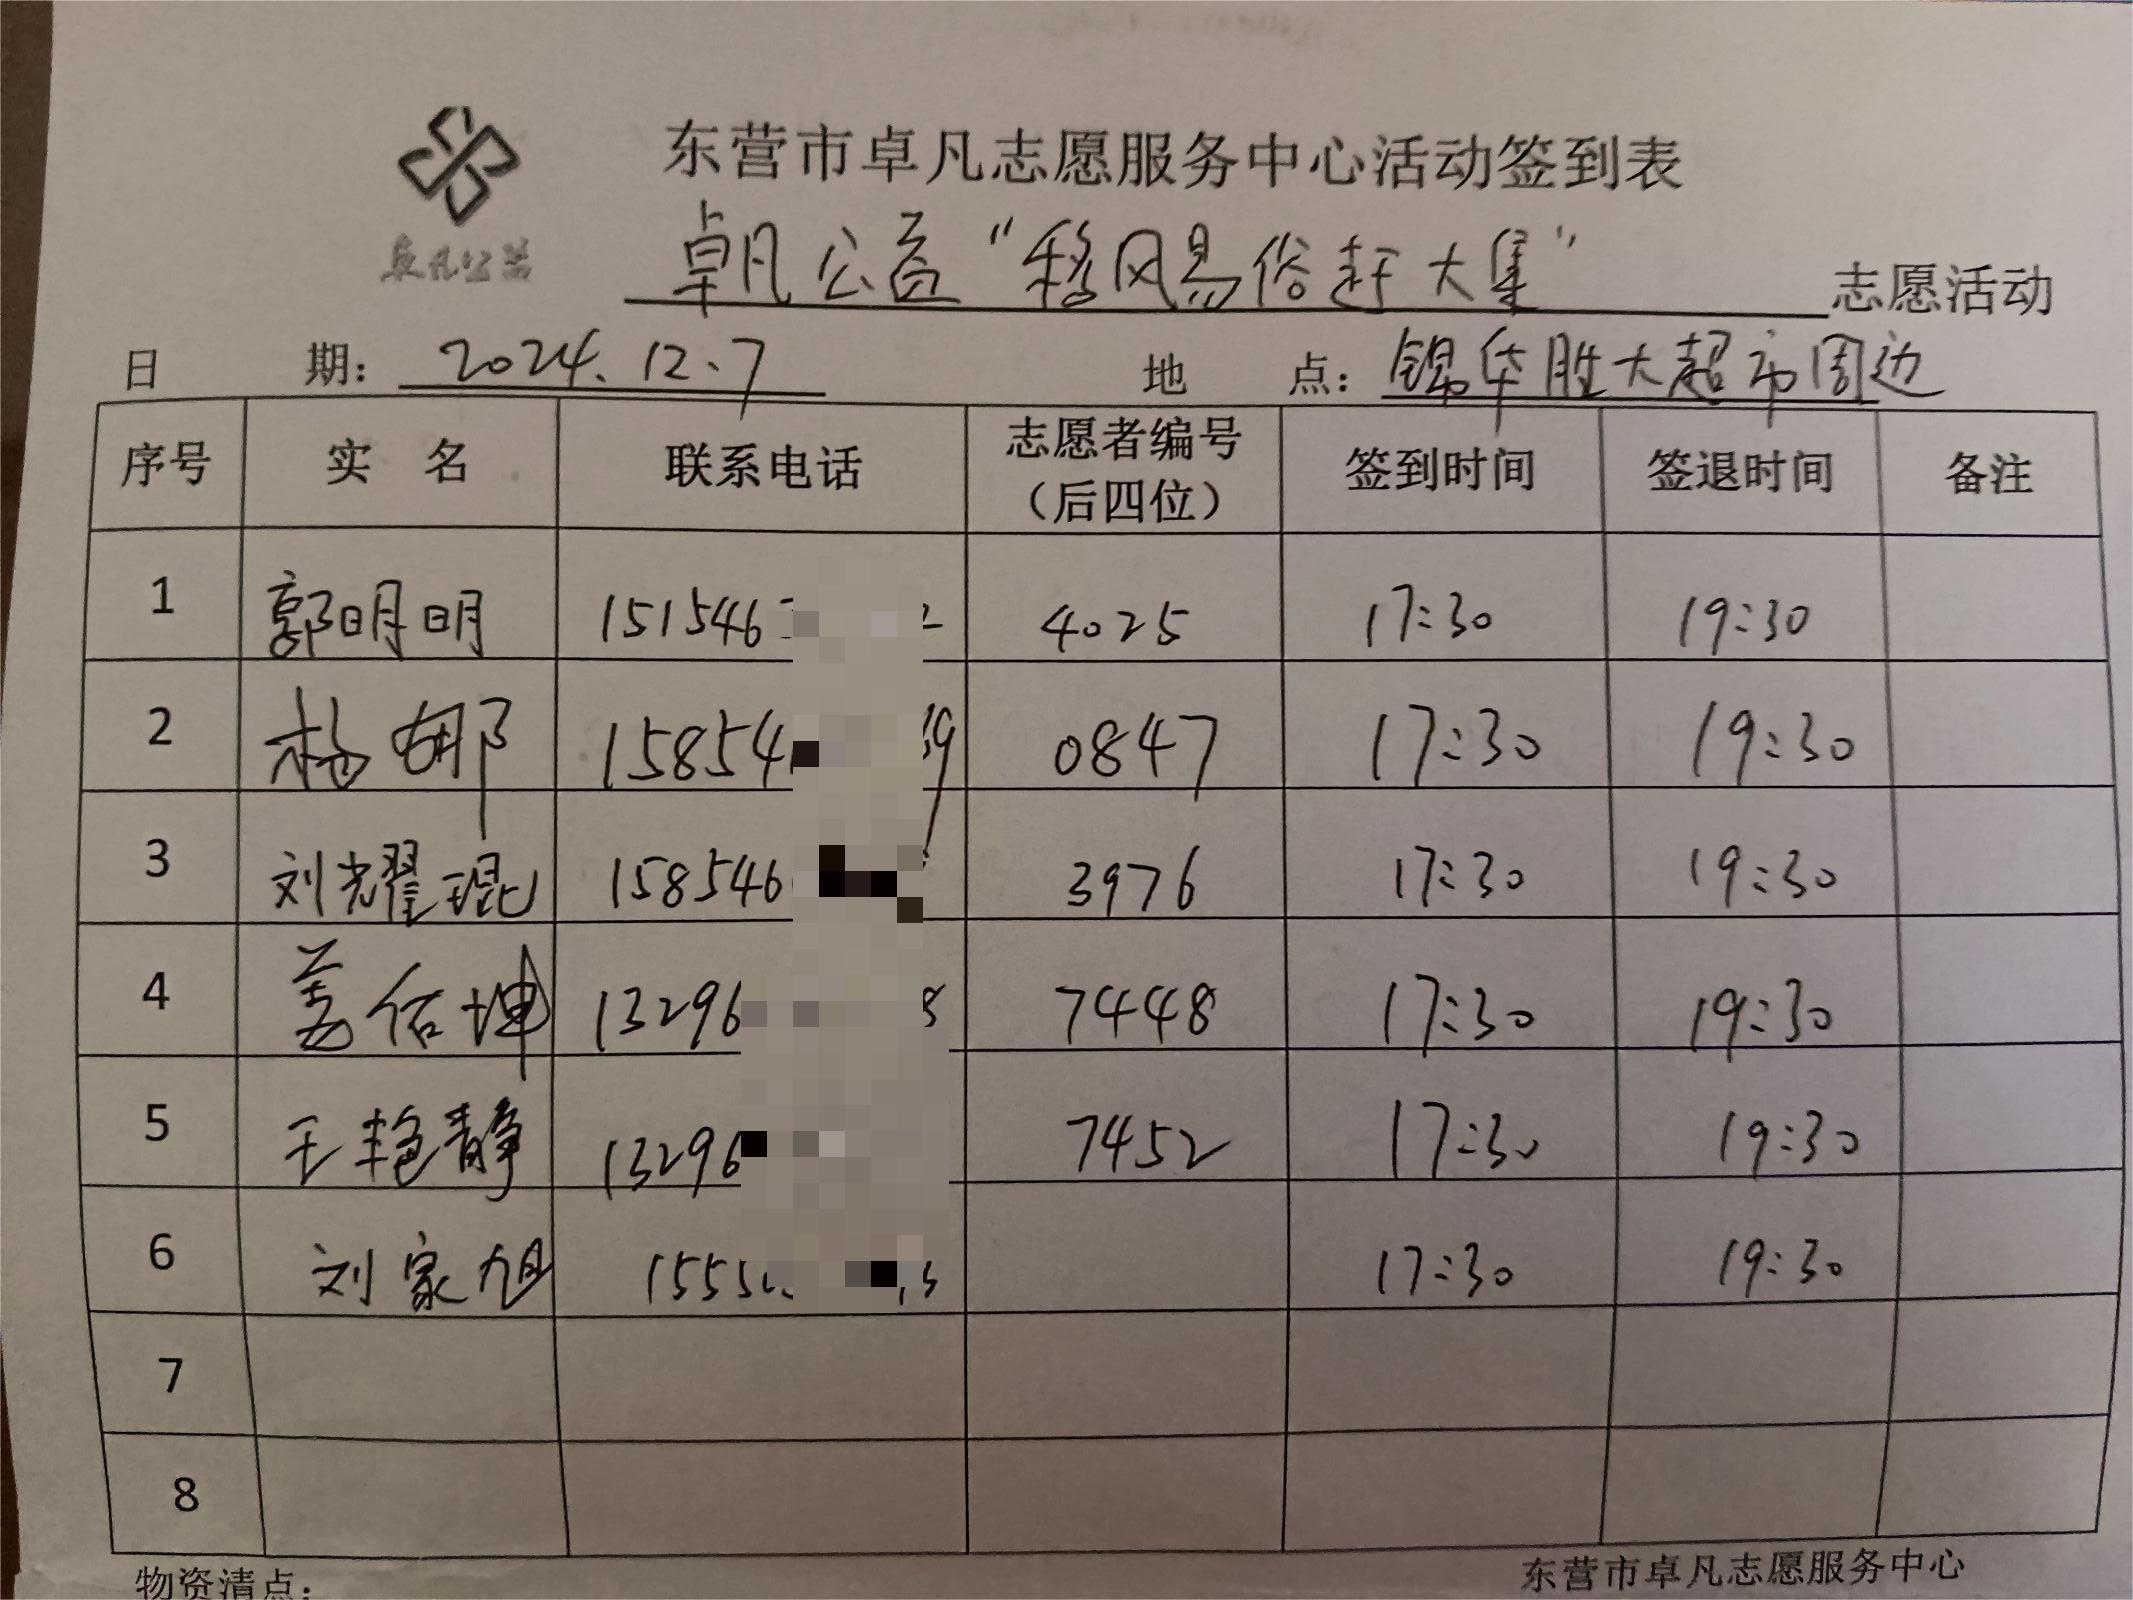 东营市卓凡志愿服务中心活动签到表
卓凡公益
卓凡公益“移风易俗赶大集” 志愿活动
日 期: 2024.12.7 地 点: 锦华胜大超市周边
序号 实 名 联系电话 志愿者编号（后四位） 签到时间 签退时间 备注
1 郭明明 151546 2 4025 17:30 19:30
2 杨娜 15854 39 0847 17:30 19:30
3 刘耀琨 158546 3976 17:30 19:30
4 姜佑坤 13296 8 7448 17:30 19:30
5 王艳静 13296 7452 17:30 19:30
6 刘家旭 1555 17:30 19:30
7
8
物资清点: 东营市卓凡志愿服务中心